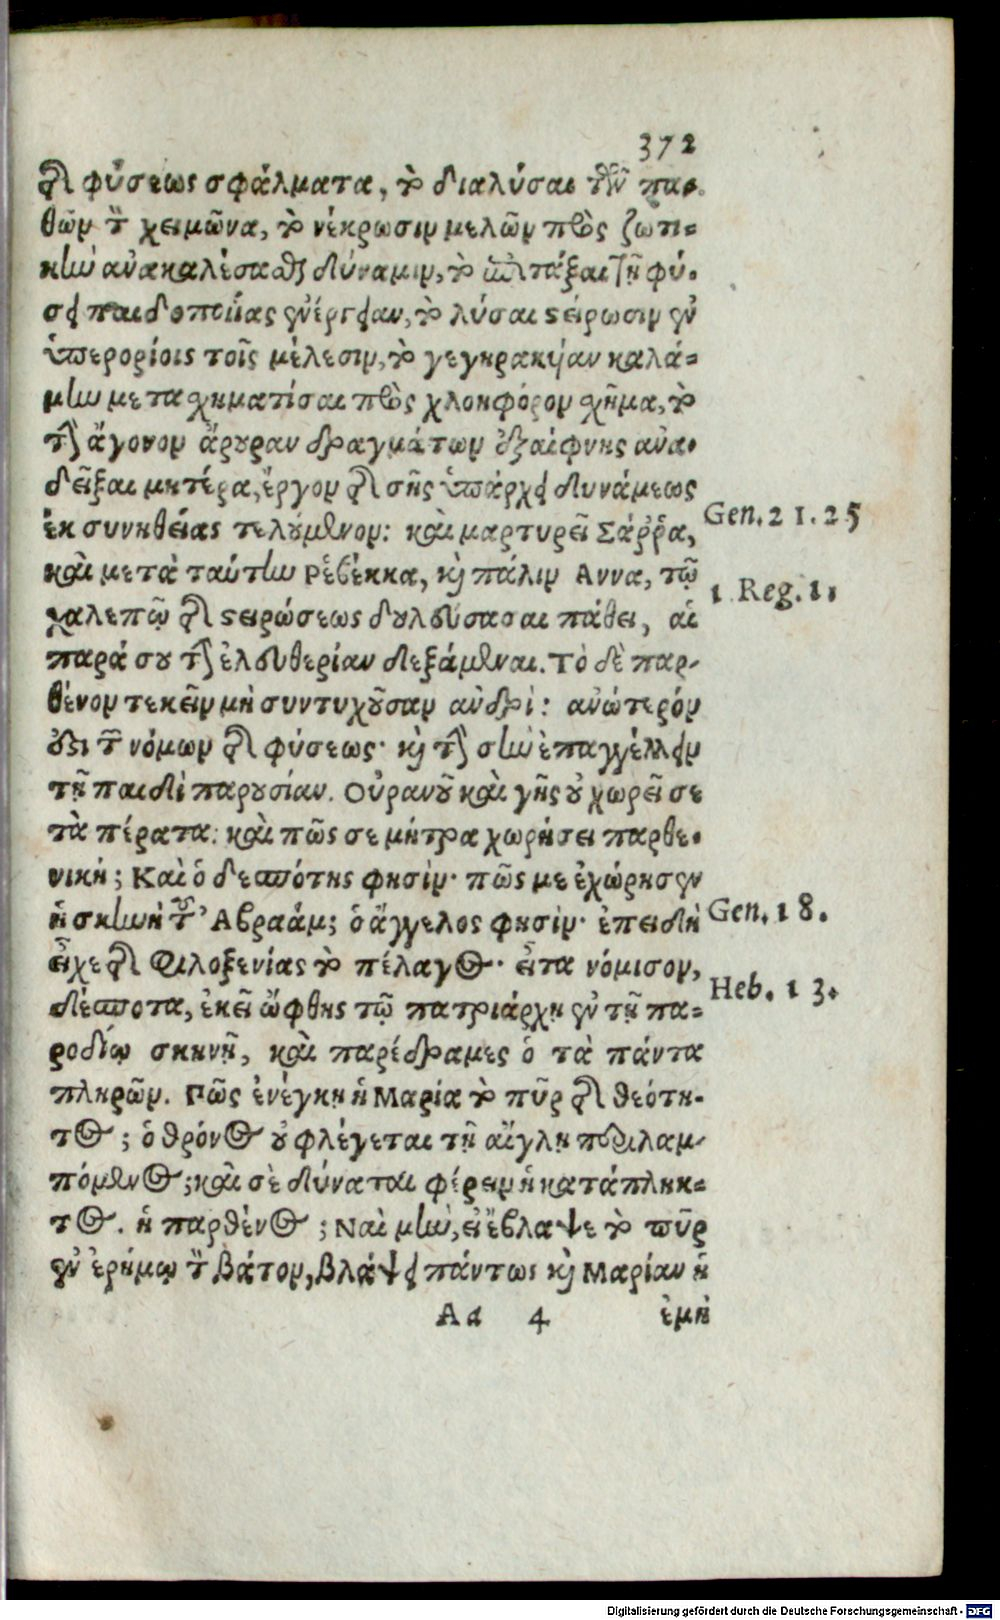 372
τῆς φύσεως σφάλματα, τὸ διαλύσαι τῶν πα-
θῶν τὸν χειμῶνα, τὸ νέκρωσιν μελῶν πρὸς ζωτι-
κὴν ἀνακαλέσασθαι δύναμιν, τὸ ἐπιτάξαι τῇ φύ-
σει παιδοποιίας ἐνέργειαν, τὸ λύσαι στείρωσιν ἐν
ὑπερορίοις τοῖς μέλεσιν, τὸ γεγηρακυῖαν καλά-
μην μετασχηματίσαι πρὸς χλοηφόρον σχῆμα, τὸ
τὴν ἄγονον ἄρουραν δραγμάτων ἐξαίφνης ἀνα-
δεῖξαι μητέρα, ἔργον τῆς σῆς ὑπάρχει δυνάμεως
ἐκ συνηθείας τελούμενον: καὶ μαρτυρεῖ Σάῤῥα,
καὶ μετὰ ταύτην Ρεβέκκα, καὶ πάλιν Αννα, τῷ
χαλεπῷ τῆς στειρώσεως δουλεύσασαι πάθει, αἱ
παρά σου τὴν ἐλευθερίαν δεξάμεναι. Τὸ δὲ παρ-
θένον τεκεῖν μὴ συντυχοῦσαν ἀνδρὶ: ἀνώτερόν
ἐστι τῶν νόμων τῆς φύσεως· καὶ τὴν σὴν ἐπαγγέλλειν
τῇ παιδὶ παρουσίαν. Οὐρανοῦ καὶ γῆς οὐ χωρεῖ σε
τὰ πέρατα: καὶ πῶς σε μήτρα χωρήσει παρθε-
νική; Καὶ ὁ δεσπότης φησὶν· πῶς με ἐχώρησεν
ἡ σκηνὴ τοῦ Ἀβραάμ; ὁ ἄγγελος φησὶν· ἐπειδὴ
εἶχε τῆς φιλοξενίας τὸ πέλαγος· εἶτα νόμισον,
δέσποτα, ἐκεῖ ὤφθης τῷ πατριάρχῃ ἐν τῇ πα-
ροδίῳ σκηνῇ, καὶ παρέδραμες ὁ τὰ πάντα
πληρῶν. Πῶς ἐνέγκῃ ἡ Μαρία τὸ πῦρ τῆς θεότη-
τος; ὁ θρόνος οὐ φλέγεται τῇ αἴγλῃ περιλαμ-
πόμενος; καὶ σὲ δύναται φέρειν ἡ κατάπληκ-
τος. ἡ παρθένος; Ναὶ μὴν, εἰ ἔβλαψε τὸ πῦρ
ἐν ἐρήμῳ τὸν βάτον, βλάψει πάντως καὶ Μαρίαν ἡ
Aa 4 ἐμὴ
Gen. 21. 25
1. Reg. 1.
Gen. 18.
Heb. 13.
Digitalisierung gefördert durch die Deutsche Forschungsgemeinschaft - DFG